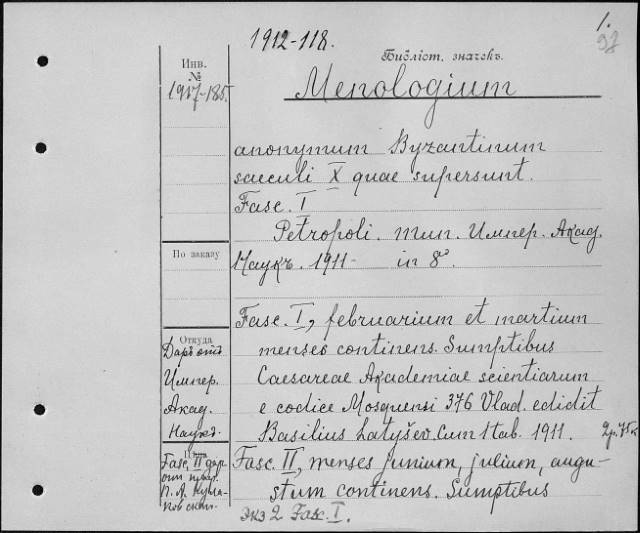 1.
97
1912-118.
Библіот. значекъ.
Инв.
№
1917-185.
Menologium
anonymum Byzantinum
saeculi X quae supersunt.
Fasc. I
Petropoli. тип. Импер. Акад.
По заказу
Наукъ. 1911- in 8º.
Fasc. I, februarium et martium
Откуда
menses continens. Sumptibus
Даръ отъ
Импер.
Caesareae Akademiae scientiarum
Акад.
e codice Mosquensi 376 Vlad. edidit
Наукъ.
Basilius Latyšev. Cum 1 tab. 1911. 2р.75к
Цѣна
Fasc. II, menses junium, julium, augu-
Fasc. II дар
от проф.
П. А.
stum continens. Sumptibus
Экз 2 Fasc. I.